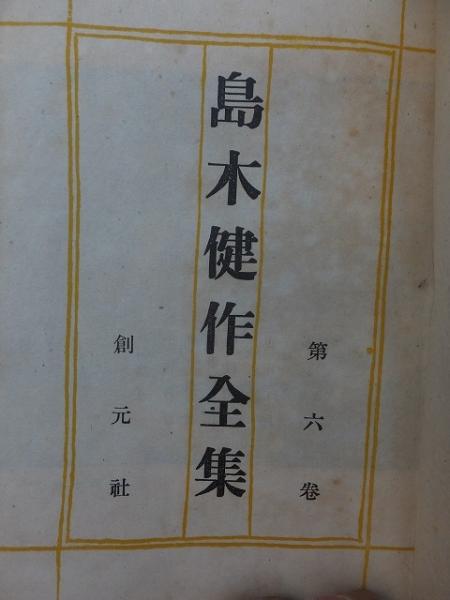 第六卷
島木健作全集
創元社